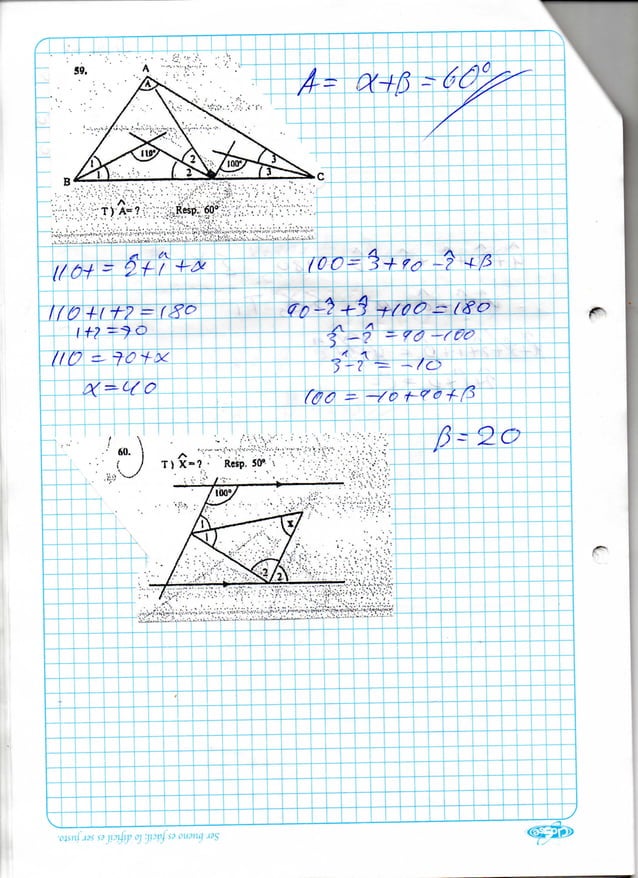 59.
A
A
A = α + β = 60°
1
1
110°
2
2
100°
3
3
B
C
T) Â = ? Resp. 60°
110 = 2̂ + 1̂ + α
110 + 1 + 2 = 180
1 + 2 = 70
110 = 70 + α
α = 40
100 = 3̂ + 90 - 2̂ + β
90 - 2̂ + 3̂ + 100 = 180
3̂ - 2̂ = 90 - 100
3̂ - 2̂ = -10
100 = -10 + 90 + β
β = 20
60.
T) X̂ = ? Resp. 50°
100°
1
1
x
2
2
Ser bueno es fácil; lo difícil es ser justo.